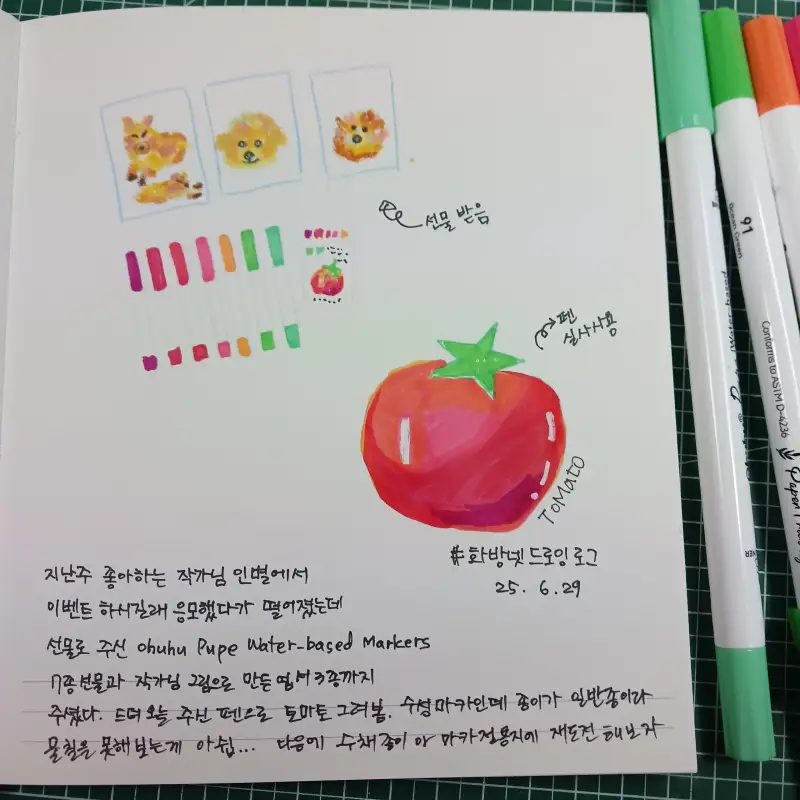 선물 받음
펜
실사사용
TOMATO
#화방넷드로잉로그
25. 6. 29
지난주 좋아하는 작가님 인별에서
이벤트 하시길래 응모했다가 떨어졌는데
선물로 주신 ohuhu Pupe Water-based Markers
7종선물과 작가님 그림으로 만든 엽서 3종까지
주셨다. 드뎌 오늘 주신 펜으로 토마토 그려봄. 수성마카인데 종이가 일반종이라
물칠을 못해보는게 아쉽... 다음에 수채종이 아 마카전용지에 재도전 해보자
91
Ocean Green
Conforms to ASTM D-4236
Water-based